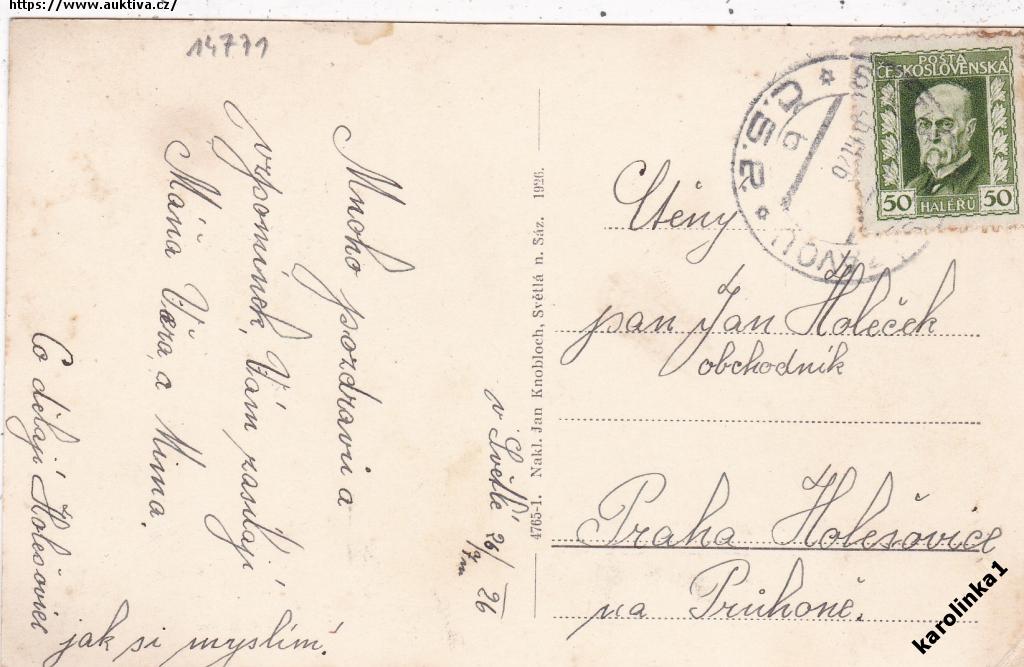 https://www.auktiva.cz/
14771
Mnoho pozdravů a
vzpomínek Vám zasílají
Máňa Věra a Mína.
Co dělají Holešovice
jak si myslím!
v Světlé 26/7 26
4765-1. Nakl. Jan Knobloch, Světlá n. Sáz. 1926.
POŠTA
ČESKOSLOVENSKÁ
50 HALÉŘŮ 50
Č.S.2
Ctěný
pan Jan Holeček
obchodník
Praha Holešovice
na Průhoně.
karolinka1